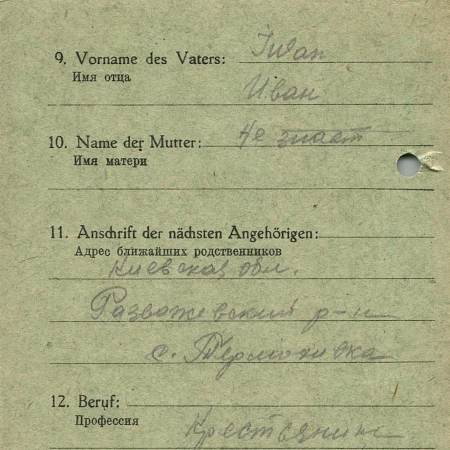 9. Vorname des Vaters: Iwan
Имя отца
Иван
10. Name der Mutter: Не знает
Имя матери
11. Anschrift der nächsten Angehörigen:
Адрес ближайших родственников
Киевская обл.
Розважевский р-н
с. Термоховка
12. Beruf:
Профессия
Крестьянин